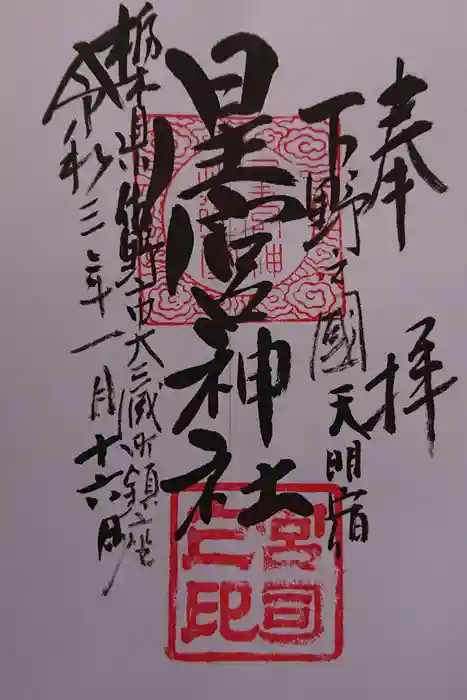 奉拝
下野之國 天明宿
星宮神社
栃木県佐野市大蔵町鎮座
令和三年一月十六日
宮司之印